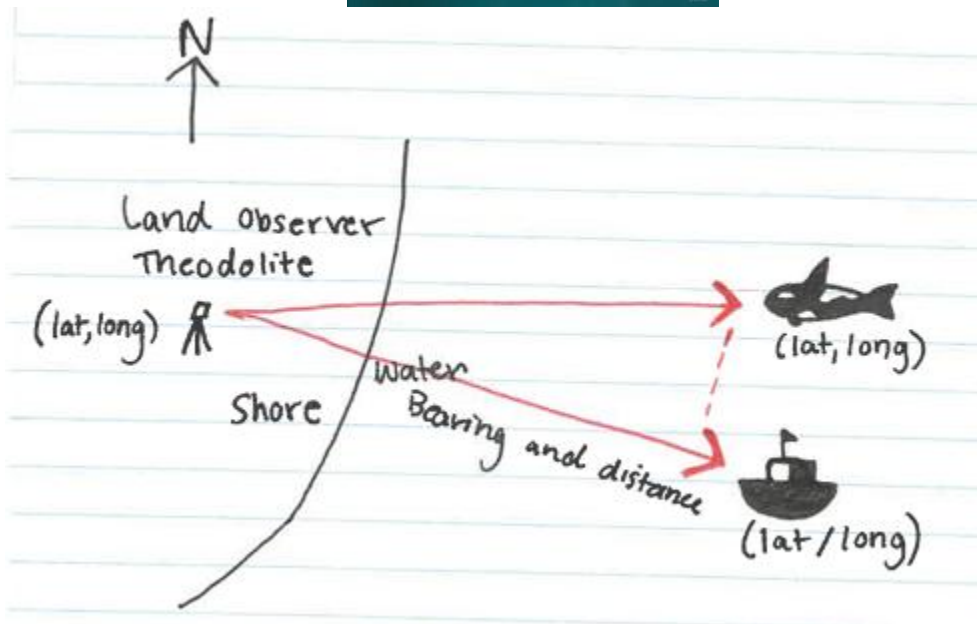 N
Land Observer
Theodolite
(lat, long)
(lat, long)
Water
Shore
Bearing and distance
(lat/long)